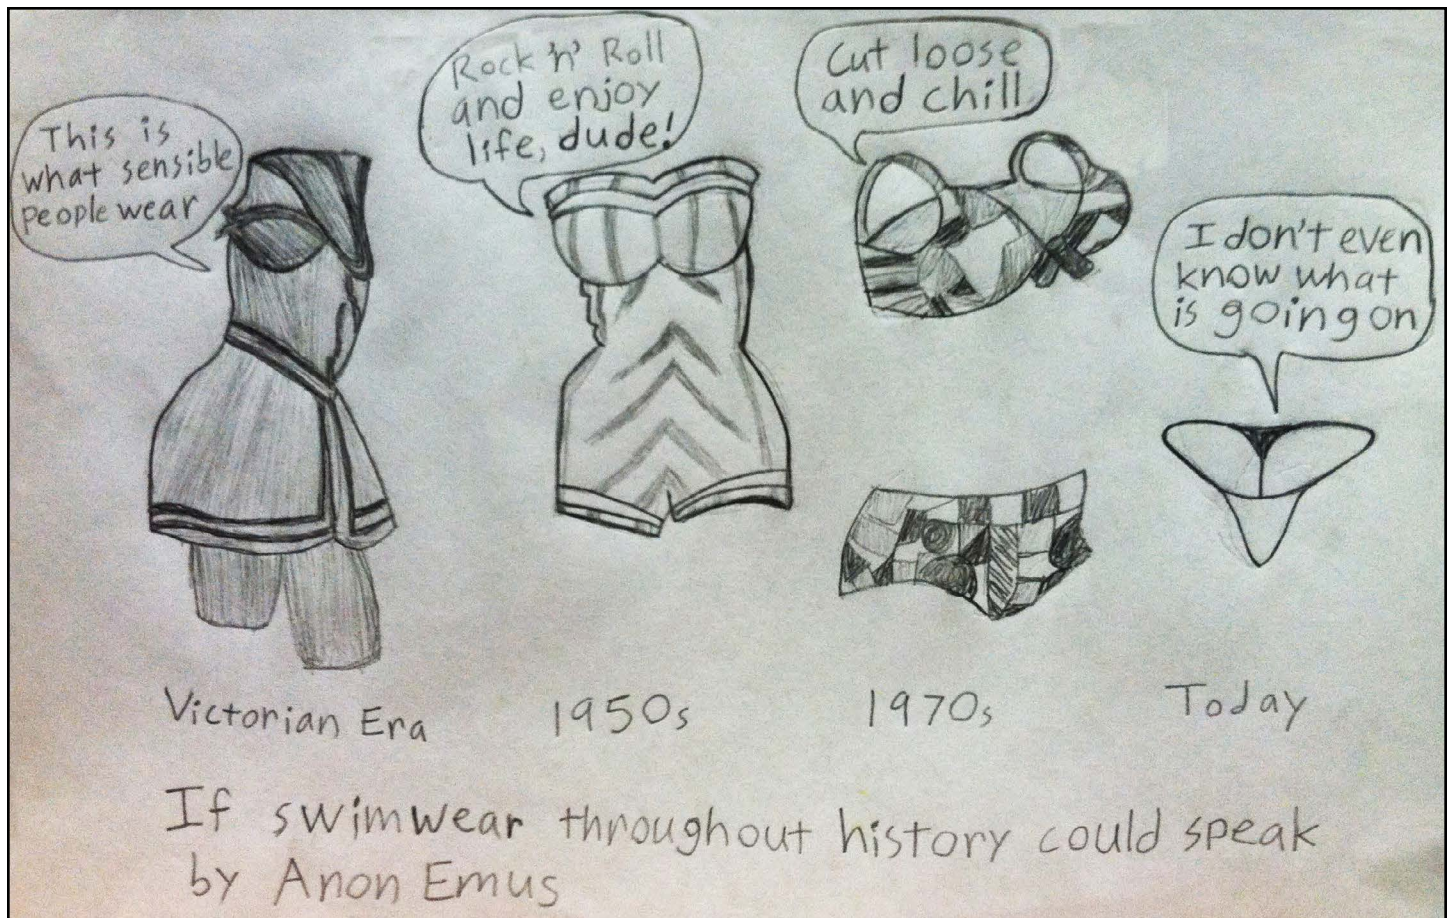 This is
what sensible
people wear
Rock 'n' Roll
and enjoy
life, dude!
Cut loose
and chill
I don't even
know what
is going on
Victorian Era
1950s
1970s
Today
If swimwear throughout history could speak
by Anon Emus